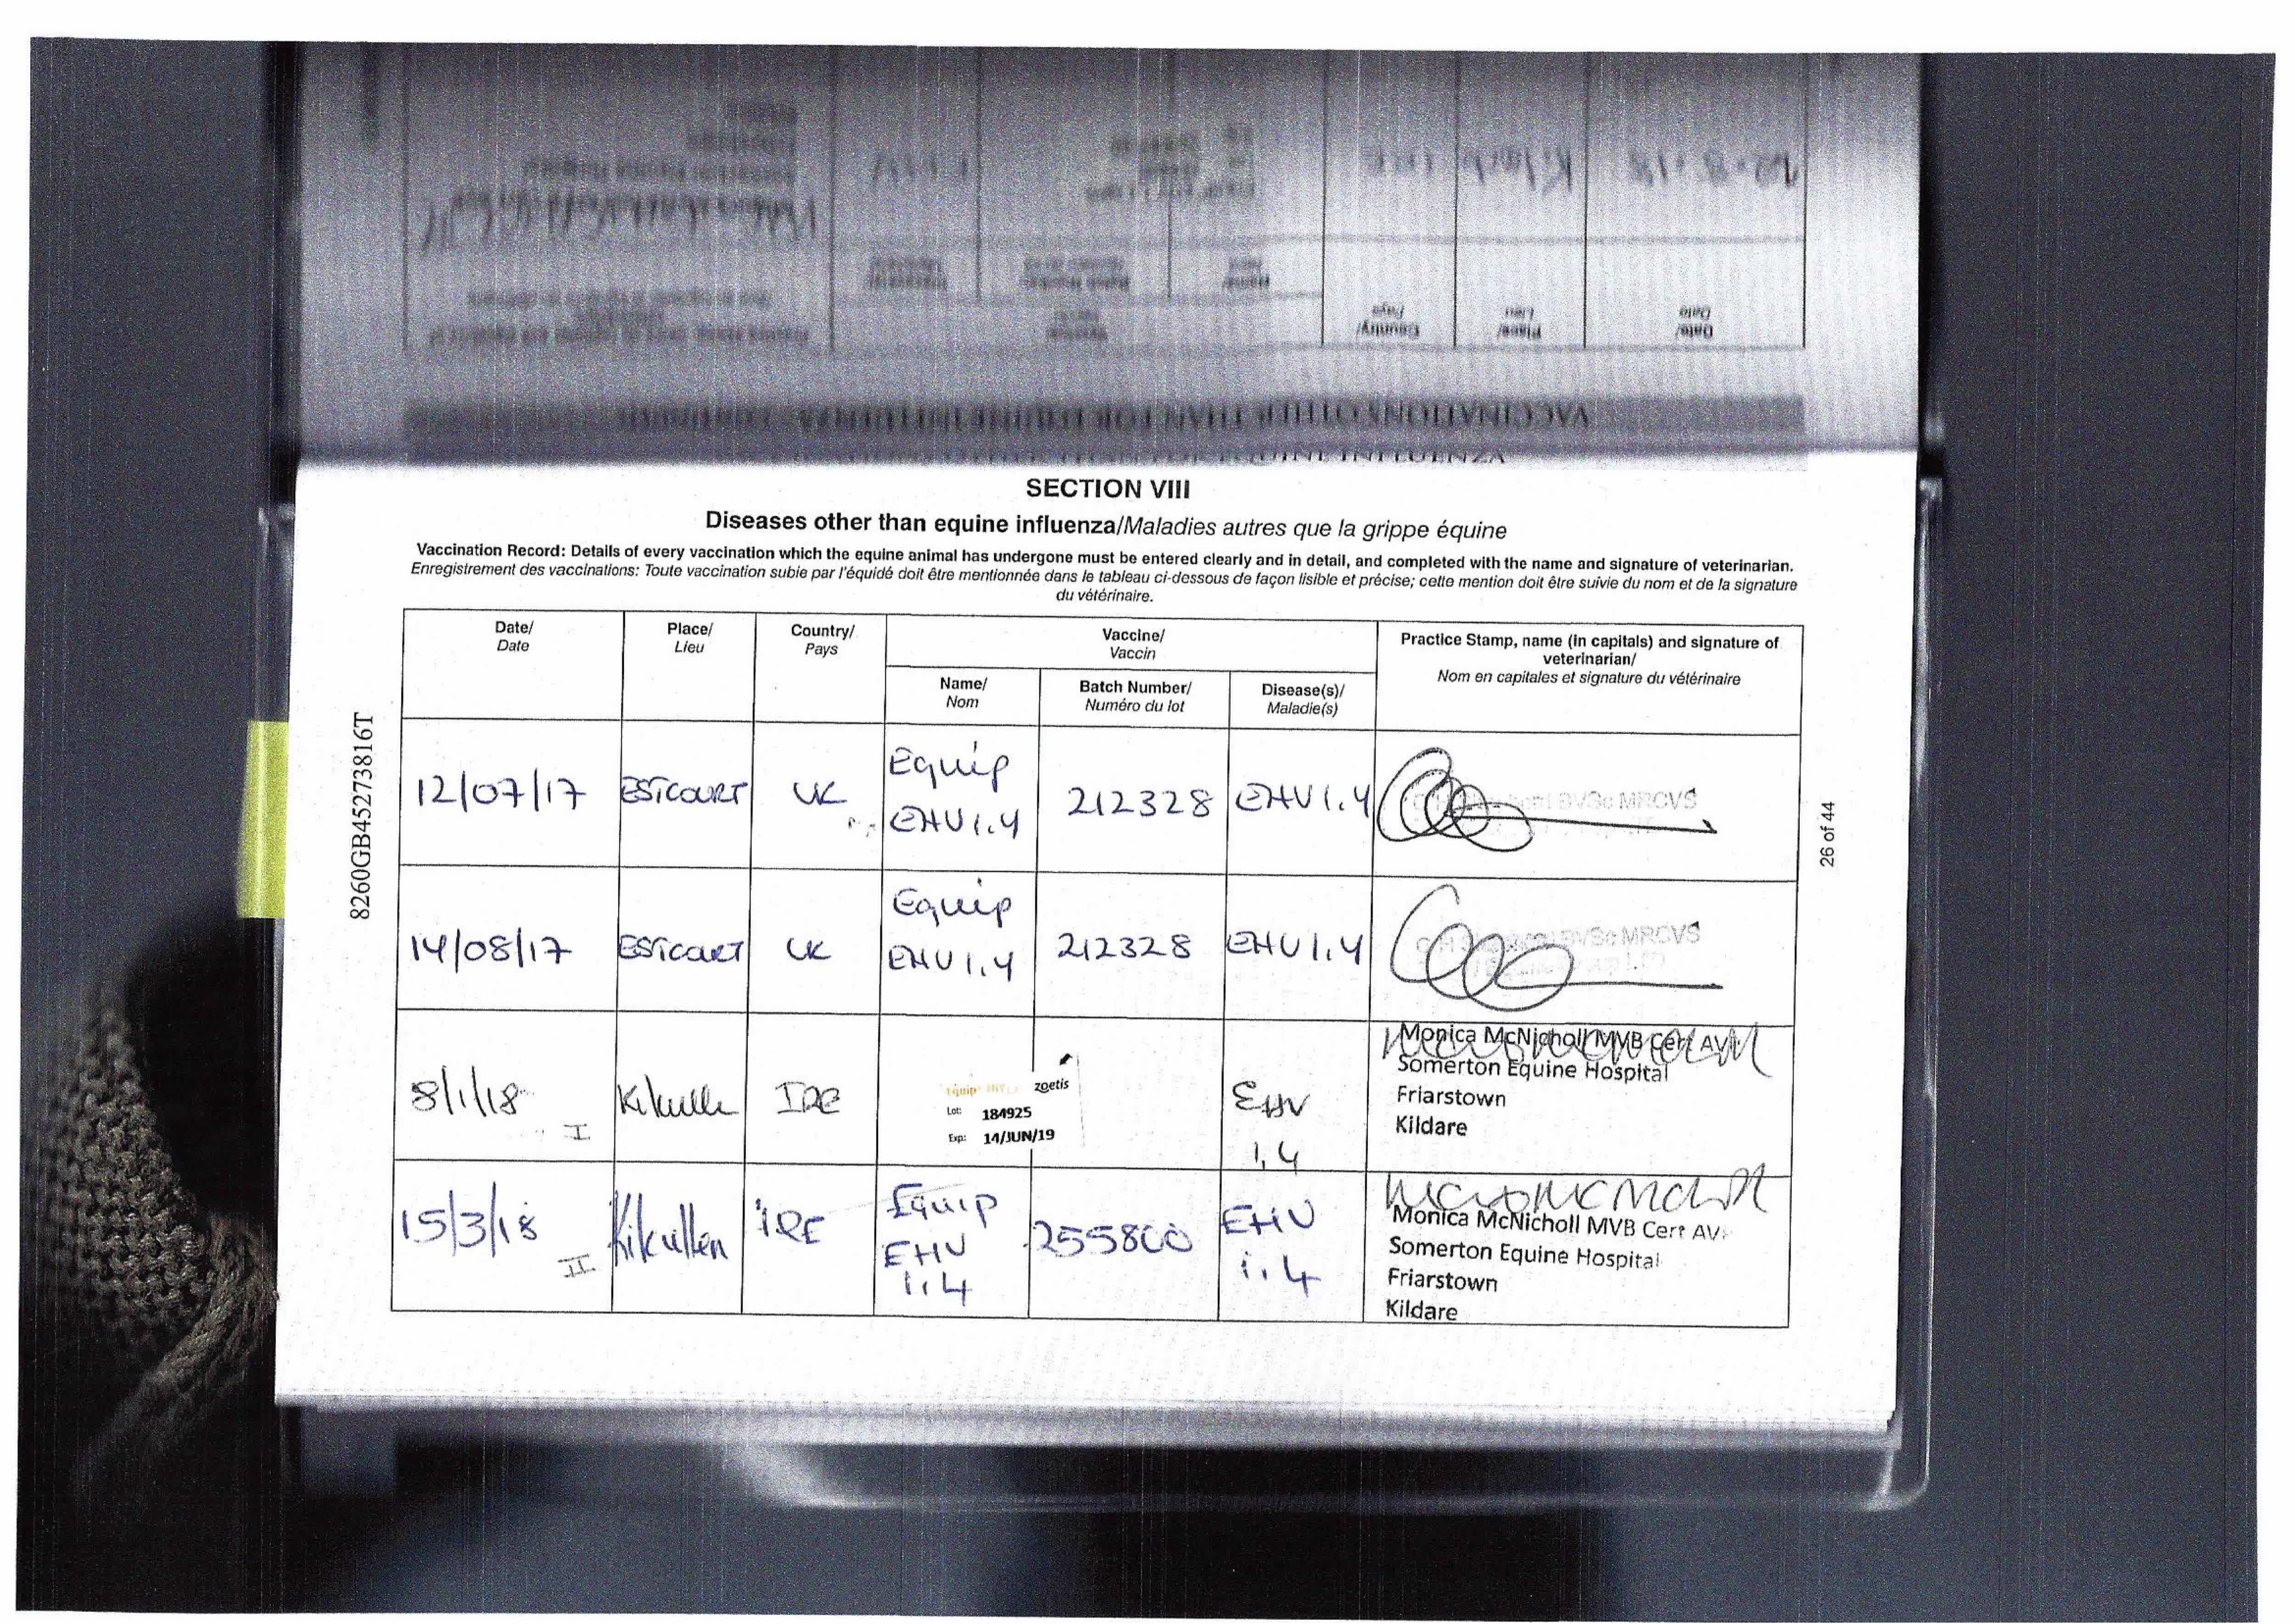 VACCINATIONS OTHER THAN FOR EQUINE INFLUENZA
Date/
Date
Place/
Lieu
Country/
Pays
SECTION VIII
Diseases other than equine influenza/Maladies autres que la grippe équine
Vaccination Record: Details of every vaccination which the equine animal has undergone must be entered clearly and in detail, and completed with the name and signature of veterinarian.
Enregistrement des vaccinations: Toute vaccination subie par l'équidé doit être mentionnée dans le tableau ci-dessous de façon lisible et précise; cette mention doit être suivie du nom et de la signature
du vétérinaire.
Date/
Date
Place/
Lieu
Country/
Pays
Vaccine/
Vaccin
Name/
Nom
Batch Number/
Numéro du lot
Disease(s)/
Maladie(s)
Practice Stamp, name (in capitals) and signature of
veterinarian/
Nom en capitales et signature du vétérinaire
12/07/17
ESTCOURT
UK
Equip
EHV1.4
212328
EHV1.4
BVSc MRCVS
14/08/17
ESTCOURT
UK
Equip
EHV1.4
212328
EHV1.4
BVSc MRCVS
8/1/18
I
Kilcullen
IRE
Equip
zoetis
Lot: 184925
Exp: 14/JUN/19
EHV
1,4
Monica McNicholl MVB Cert AV
Somerton Equine Hospital
Friarstown
Kildare
15/3/18
II
Kilcullen
IRE
Equip
EHV
1.4
255800
EHV
1.4
Monica McNicholl MVB Cert AV
Somerton Equine Hospital
Friarstown
Kildare
8260GB45273816T
26 of 44